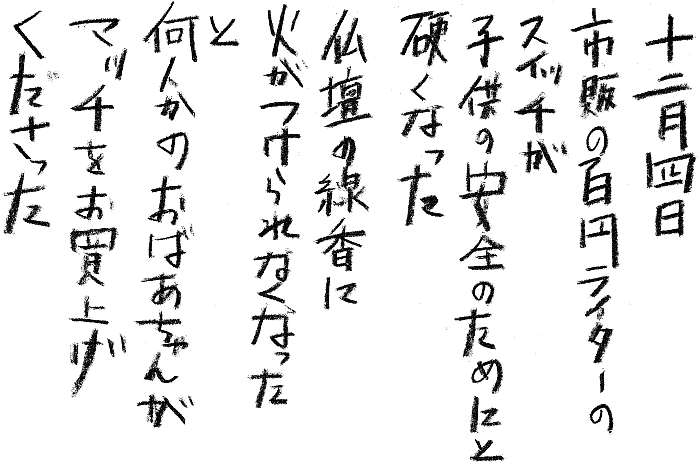 十二月四日
市販の百円ライターの
スイッチが
子供の安全のためにと
硬くなった
仏壇の線香に
火がつけられなくなった
と
何人かのおばあちゃんが
マッチをお買上げ
くださった